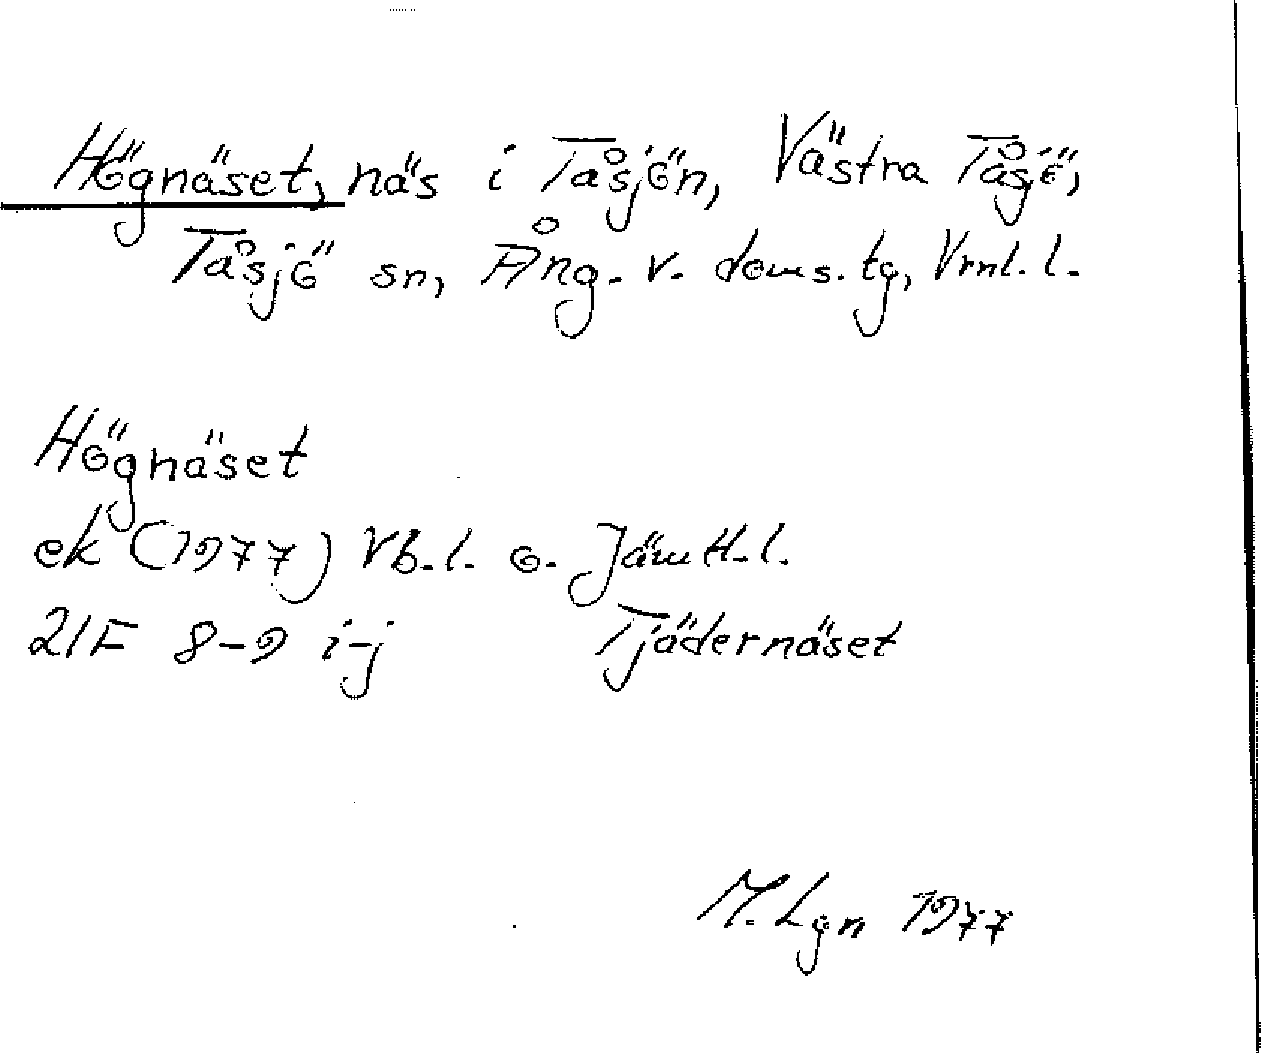 Högnäset, näs i Tåsjön, Västra Tåsjö,
Tåsjö sn, Ång. v. doms. tg, Vrnl. l.
Högnäset
ek (1977) Vb. l. o. Jämtl. l.
21F 8-9 i-j Tjädernäset
M. Lgn 1977